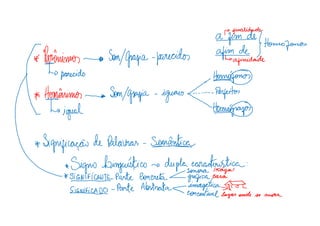 ↳ finalidade
a fim de
afim de
↳ afinidade
Homófonos
* Parônimos → Som/grafia - parecidos
↳ parecido
* Homônimos → Som/grafia - iguais
↳ igual
Homófonos
Perfeitos
Homógrafos
* Significação de Palavras - Semântica
* Signo linguístico → dupla característica
* SIGNIFICANTE - Parte Concreta
sonora /kaza/
gráfica casa
SIGNIFICADO - Parte Abstrata
imagética
conceitual Lugar onde se mora